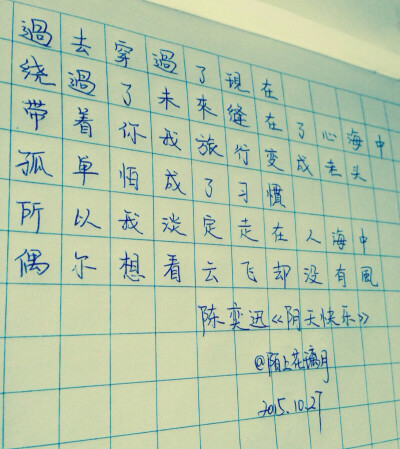 過去穿過了現在
绕過了未來縫在了心海中
带着你我旅行变成老头
孤单怕成了习慣
所以我淡定走在人海中
偶尔想看云飞却没有風
陈奕迅《阴天快乐》
@陌上花月
2015.10.27